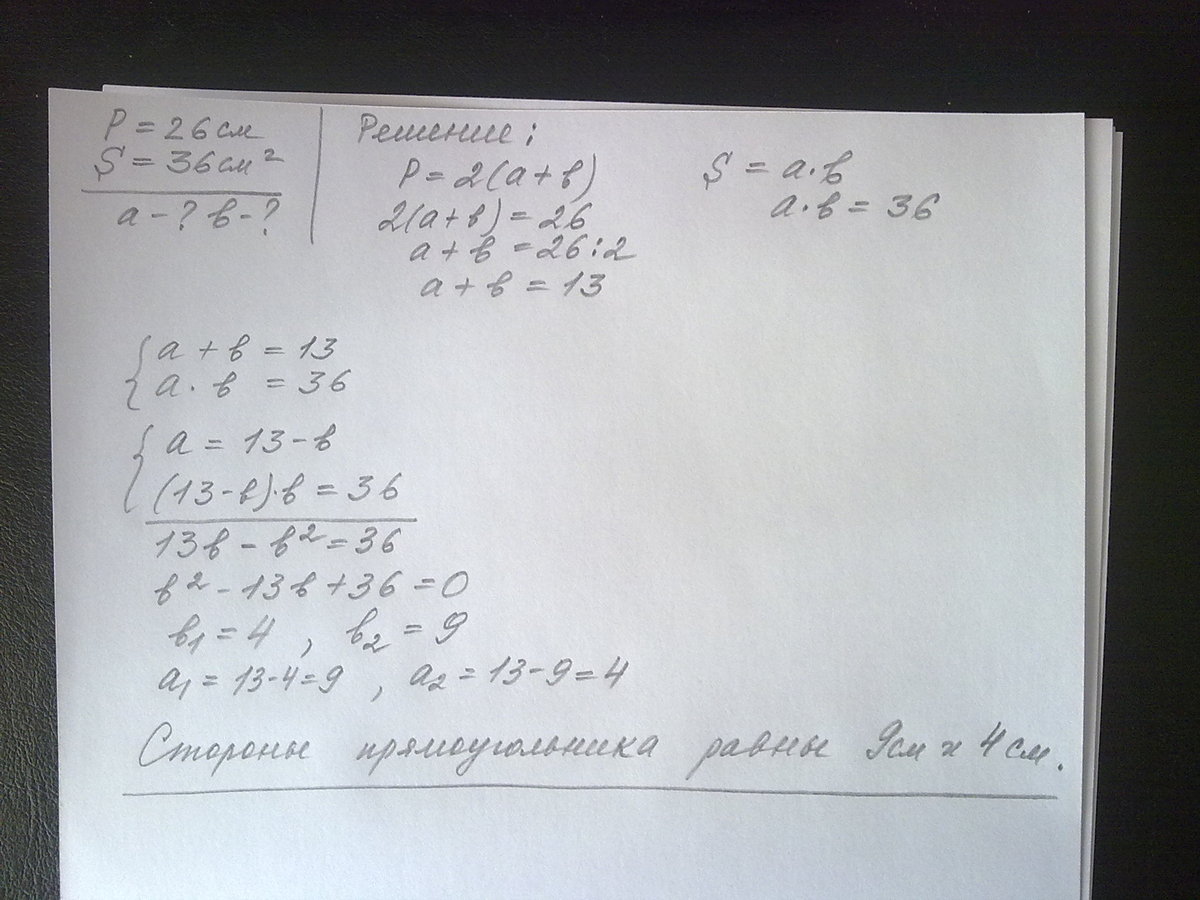 P = 26 см
S = 36 см²
a - ? в - ?
Решение:
P = 2(a + в)
2(a + в) = 26
a + в = 26 : 2
a + в = 13
S = a · в
a · в = 36
{ a + в = 13
a · в = 36
{ a = 13 - в
(13 - в) · в = 36
13в - в² = 36
в² - 13в + 36 = 0
в₁ = 4 , в₂ = 9
a₁ = 13 - 4 = 9 , a₂ = 13 - 9 = 4
Стороны прямоугольника равны 9см и 4 см.